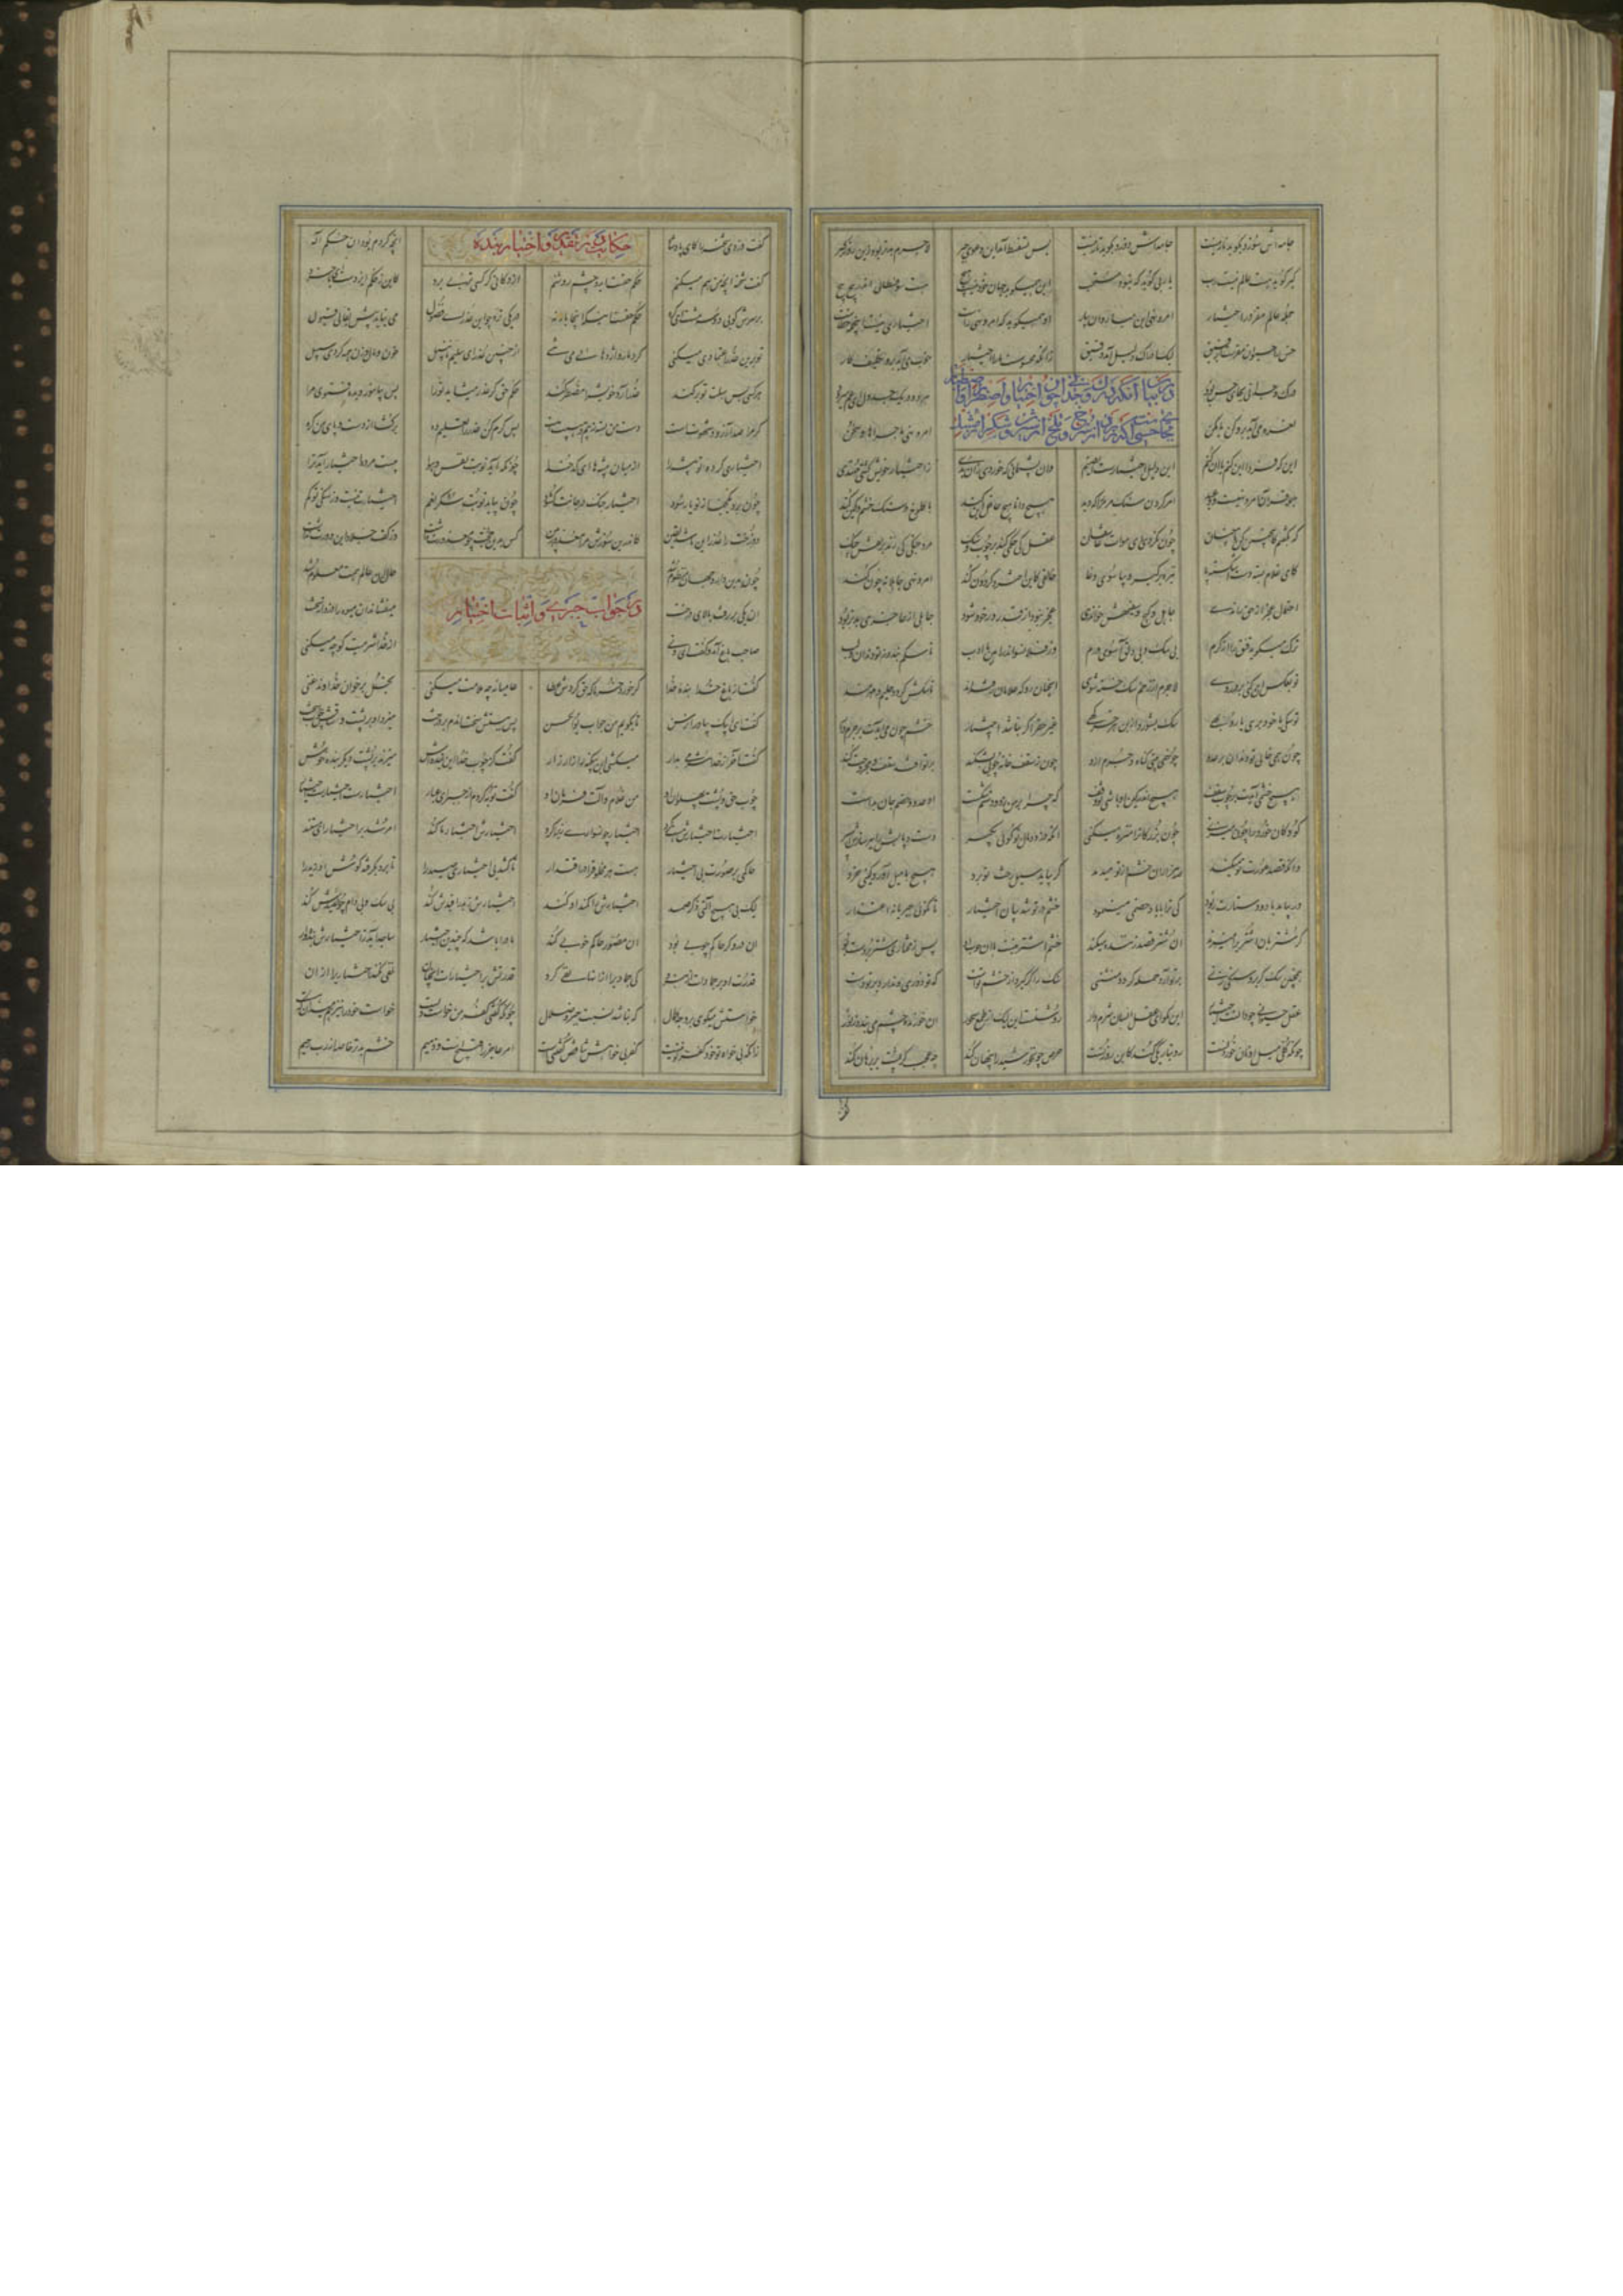 جامه‌اش سوزد بگوید نار نیست جامه‌اش دوزد بگوید تار نیست پس تسفسط آمد این دعوی جبر لاجرم بدتر بود زین رو ز گبر
گبر گوید هست عالم نیست رب یا ربی گوید که نبود مستحب این همی گوید جهان خود نیست هیچ هست سوفسطایی اندر پیچ پیچ
جمله عالم مقر در اختیار امر و نهی این میار و آن بیار او همی گوید که امر و نهی لاست اختیاری نیست این جمله خطاست
حس را حیوان مقرست ای رفیق لیک ادراک دلیل آمد دقیق زانکه محسوست ما را اختیار خوب می‌آید برو تکلیف کار
درک وجدانی بجای حس بود
هر دو در یک جدول ای عم میرود
نغز می‌آید برو کن یا مکن
امر و نهی و ماجراها و سخن
این که فردا این کنم یا آن کنم این دلیل اختیارست ای صنم وان پشیمانی که خوردی زان بدی ز اختیار خویش گشتی مهتدی
جمله قرآن امر و نهیست و وعید امر کردن سنگ مرمر را که دید هیچ دانا هیچ عاقل این کند با کلوخ و سنگ خشم و کین کند
که بگفتم کاین چنین کن یا چنان چون نکردی ای موات و عاجزان عقل کی حکمی کند بر چوب و سنگ مرد چنگی کی زند بر نقش چنگ
کای غلام بسته دست اشکسته پا نیزه برگیر و بیا سوی وغا خالقی کاین اختر و گردون کند امر و نهی جاهلانه چون کند
احتمال عجز از حق راندی جاهل و گیج و سفیهش خواندی عجز نبود از قدر ور خود بود جاهلی از عاجزی بدتر بود
ترک میگوید قنق را از کرم بی سگ و بی دلق آ سوی درم وز فلان سو اندر آ هین با ادب تا سگم بندد ز تو دندان و لب
تو بعکس آن کنی بر در روی لاجرم از زخم سگ خسته شوی آنچنان رو که غلامان رفته‌اند تا سگش گردد حلیم و مهرمند
تو سگی با خود بری یا روبهی سگ بشورد از بن هر خرگهی غیر حق را گر نباشد اختیار خشم چون می‌آیدت بر جرم دار
چون همی خایی تو دندان بر عدو چون همی بینی گناه و جرم ازو چون ز سقف خانه چوبی بشکند بر تو افتد سخت مجروحت کند
هیچ خشمی آیدت بر چوب سقف هیچ اندر کین او باشی تو وقف که چرا بر من زد و دستم شکست او عدو و خصم جان من بدست
کودکان خرد را چون میزنی چون بزرگان را منزه میکنی آنکه دزدد مال تو گویی بگیر دست و پایش را ببر سازش اسیر
وانکه قصد عورت تو میکند صد هزاران خشم از تو میدمد گر بیاید سیل و رخت تو برد هیچ با سیل آورد کینی خرد
ور بیاید باد و دستارت ربود کی ترا با باد خشمی مینمود خشم در تو شد بیان اختیار تا نگویی جبریانه اعتذار
گر شتربان اشتری را میزند آن شتر قصد زننده میکند خشم اشتر نیست با آن چوب او پس ز مختاری شتر بردست بو
همچنین سگ گر برو سنگی زنی بر تو آرد حمله گردد منثنی سنگ را گر گیرد از خشم توست که تو دوری و ندارد بر تو دست
عقل حیوانی چو دانست اختیار این مگو ای عقل انسان شرم دار روشنست این لیک از طمع سحور آن خورنده چشم می‌بندد ز نور
چونکه کلی میل او نان خوردنیست رو بتاریکی کند کاین روز نیست حرص چون خورشید را پنهان کند چه عجب گر پشت بر برهان کند
گفت دزدی شحنه را کای پادشاه
حکایت در تقدیر و اختیار بنده
آنچه کردم بود آن حکم اله
گفت شحنه آنچه من هم میکنم حکم حقست ای دو چشم روشنم از دکانی گر کسی تربی برد کاین ز حکم ایزدست ای با خرد
بر سرش کوبی دو سه مشت ای کره حکم حقست این که اینجا باز نه در یکی تره چو این عذر ای فضول می نیاید پیش بقالی قبول
تو برین عذر اعتمادی میکنی گرد مار و اژدها بر می‌تنی از چنین عذر ای سلیم نانبیل خون و مال و زن همه کردی سبیل
هر کسی پس سبلت تو برکند عذر آرد خویش را مضطر کند حکم حق گر عذر میشاید ترا پس بیاموز و بده فتوی مرا
که مرا صد آرزو و شهوتست دست من بسته ز بیم و هیبتست پس کرم کن عذر را تعلیم ده برگشا از دست و پای من گره
اختیاری کرده تو پیشه‌ای از میان پیشه‌ها ای کدخدا چونکه آید نوبت نفس و هوا بیست مرده اختیار آید ترا
چون برد یک حبه از تو یار سود اختیار جنگ در جانت گشود چون بیاید نوبت شکر نعم اختیارت نیست وز سنگی تو کم
دوزخت را عذر این باشد یقین کاندرین سوزش مرا معذور بین کس بدین حجت چو معذورت نداشت وز کف جلاد این دورت نداشت
چون بدین داور جهان منظوم شد
حال آن عالم همت معلوم شد
در جواب جبری و اثبات اختیار
آن یکی بر رفت بالای درخت
میفشاند آن میوه را دزدانه سخت
صاحب باغ آمد و گفت ای دنی
از خدا شرمیت کو چه میکنی
گفت از باغ خدا بنده خدا گر خورد خرما که حق کردش عطا عامیانه چه ملامت میکنی بخل بر خوان خداوند غنی
گفت ای ایبک بیاور آن رسن تا بگویم من جواب بوالحسن پس ببستش سخت آن دم بر درخت میزد او بر پشت و ساقش چوب سخت
گفت آخر از خدا شرمی بدار میکشی این بیگنه را زار زار گفت کز چوب خدا این بنده‌اش میزند بر پشت دیگر بنده خوش
چوب حق و پشت و پهلو آن او من غلام و آلت فرمان او گفت توبه کردم از جبر ای عیار اختیارست اختیارست اختیار
اختیارات اختیارش هست کرد اختیارش چون سواری زیر گرد اختیارش اختیار ما کند امر شد بر اختیار ای مستند
حاکمی بر صورت بی اختیار هست هر مخلوق را در اقتدار تا کشد بی اختیاری صید را تا برد بگرفته گوش او زید را
لیک بی هیچ آلتی صنع صمد اختیارش را کمند او کند اختیارش زید را قیدش کند بی سگ و بی دام حق صیدش کند
آن دروگر حاکم چوبی بود آن مصور حاکم خوبی بود نادر این باشد که چندین اختیار ساجد آید ز اختیارش بنده‌وار
قدرت تو بر جمادات از نبرد کی جمادی را از آنها نفی کرد قدرتش بر اختیارات آنچنان نفی نکند اختیاری را از آن
خواستش میگوی بر وجه کمال که نباشد نسبت جبر و ضلال چونکه گفتی کفر من خواست ویست خواست خود را نیز هم میدان که هست
زانکه بی خواه تو خود کفر تو نیست کفر بی خواهش تناقض گفتنیست امر عاجز را قبیحست و ذمیم خشم بدتر خاصه از رب رحیم